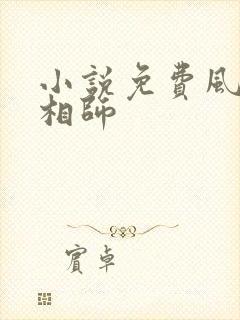 小説免費風
相師
賓卓